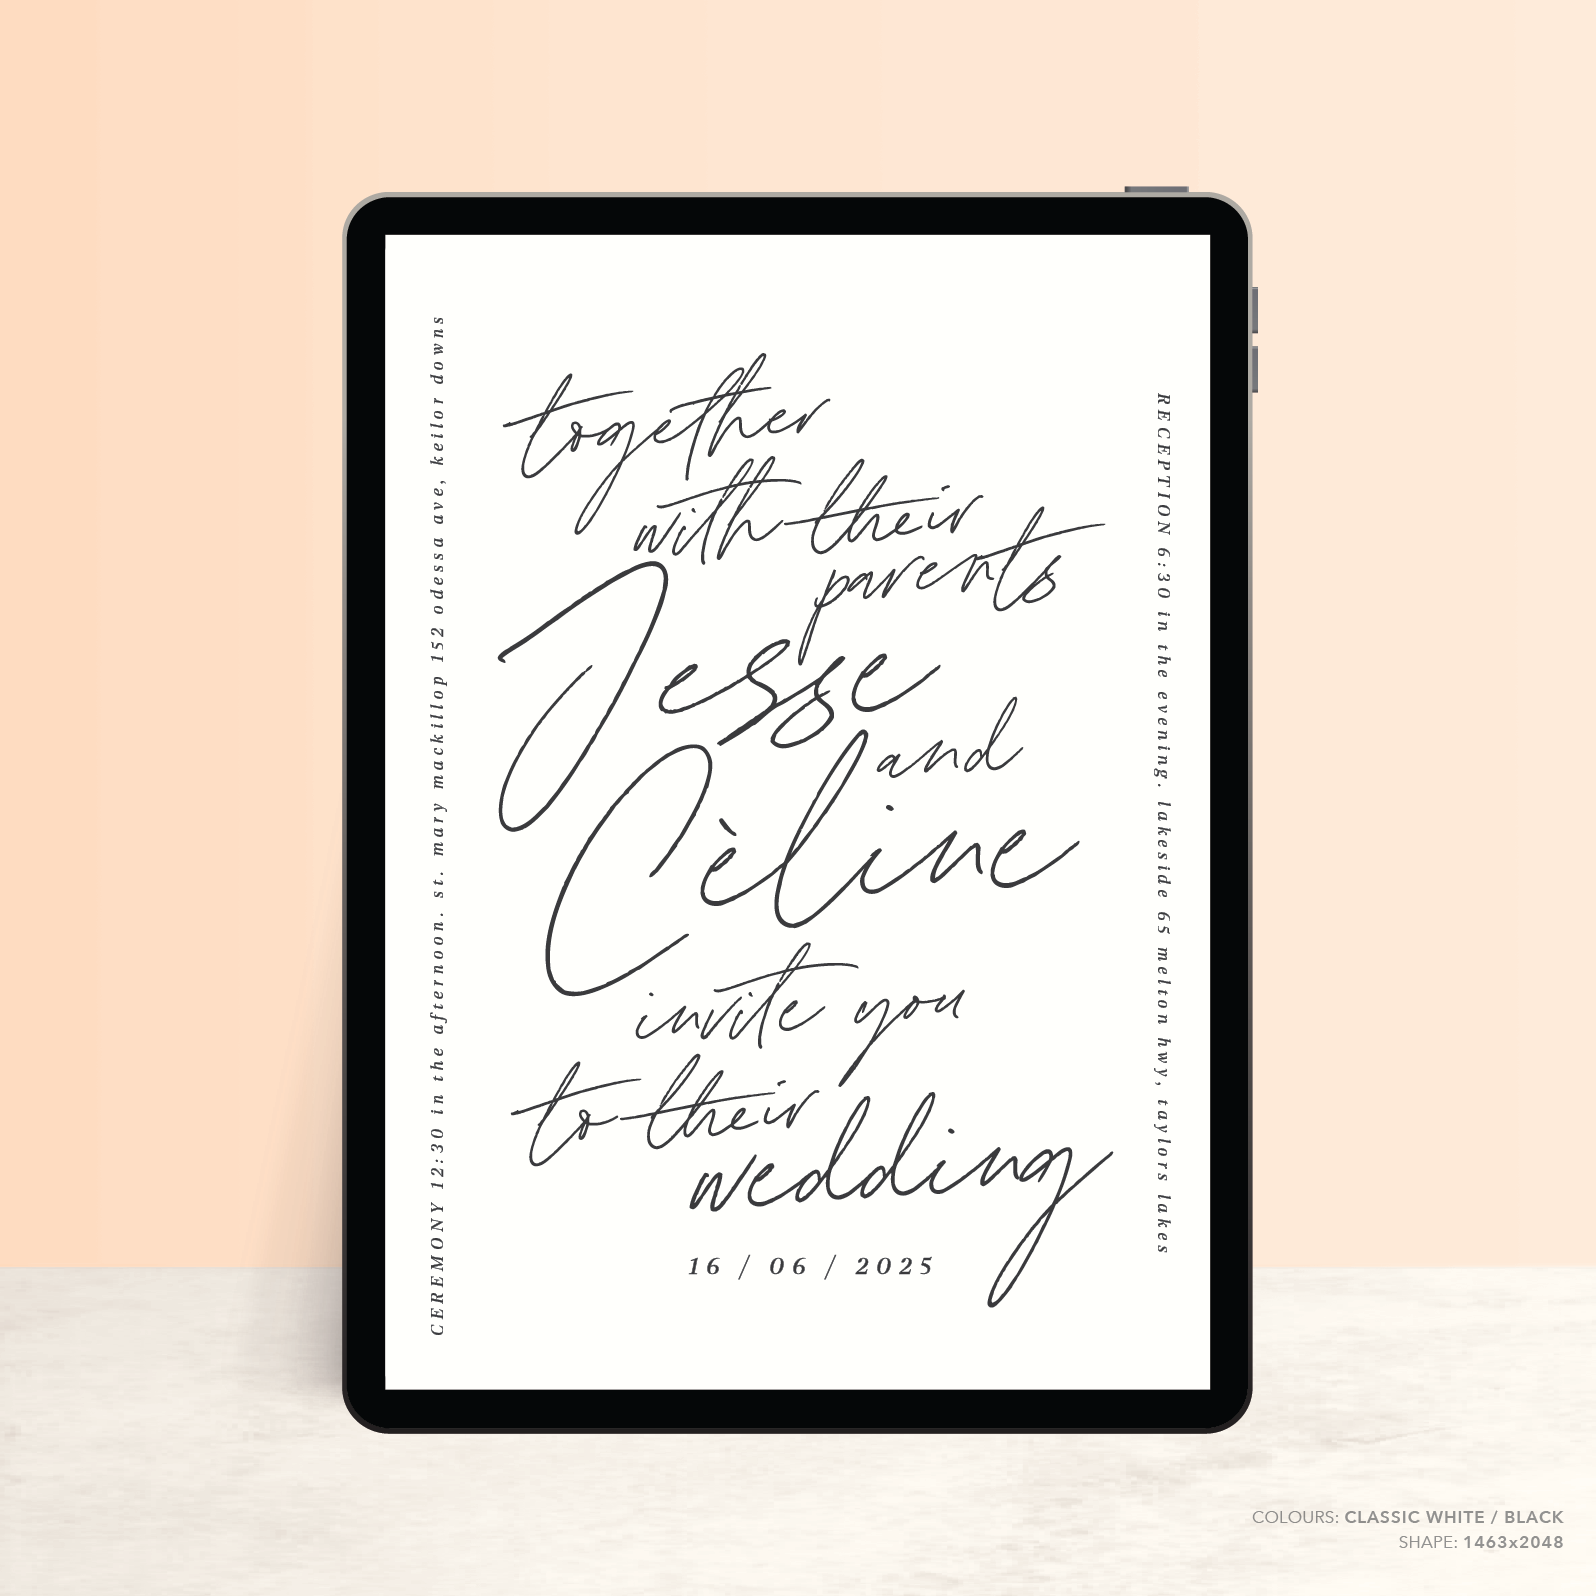 together
with their
parents
Jesse
and
Cèline
invite you
to their
wedding
16 / 06 / 2025
CEREMONY 12:30 in the afternoon. st. mary mackillop 152 odessa ave, keilor downs
RECEPTION 6:30 in the evening. lakeside 65 melton hwy, taylors lakes
COLOURS: CLASSIC WHITE / BLACK
SHAPE: 1463x2048